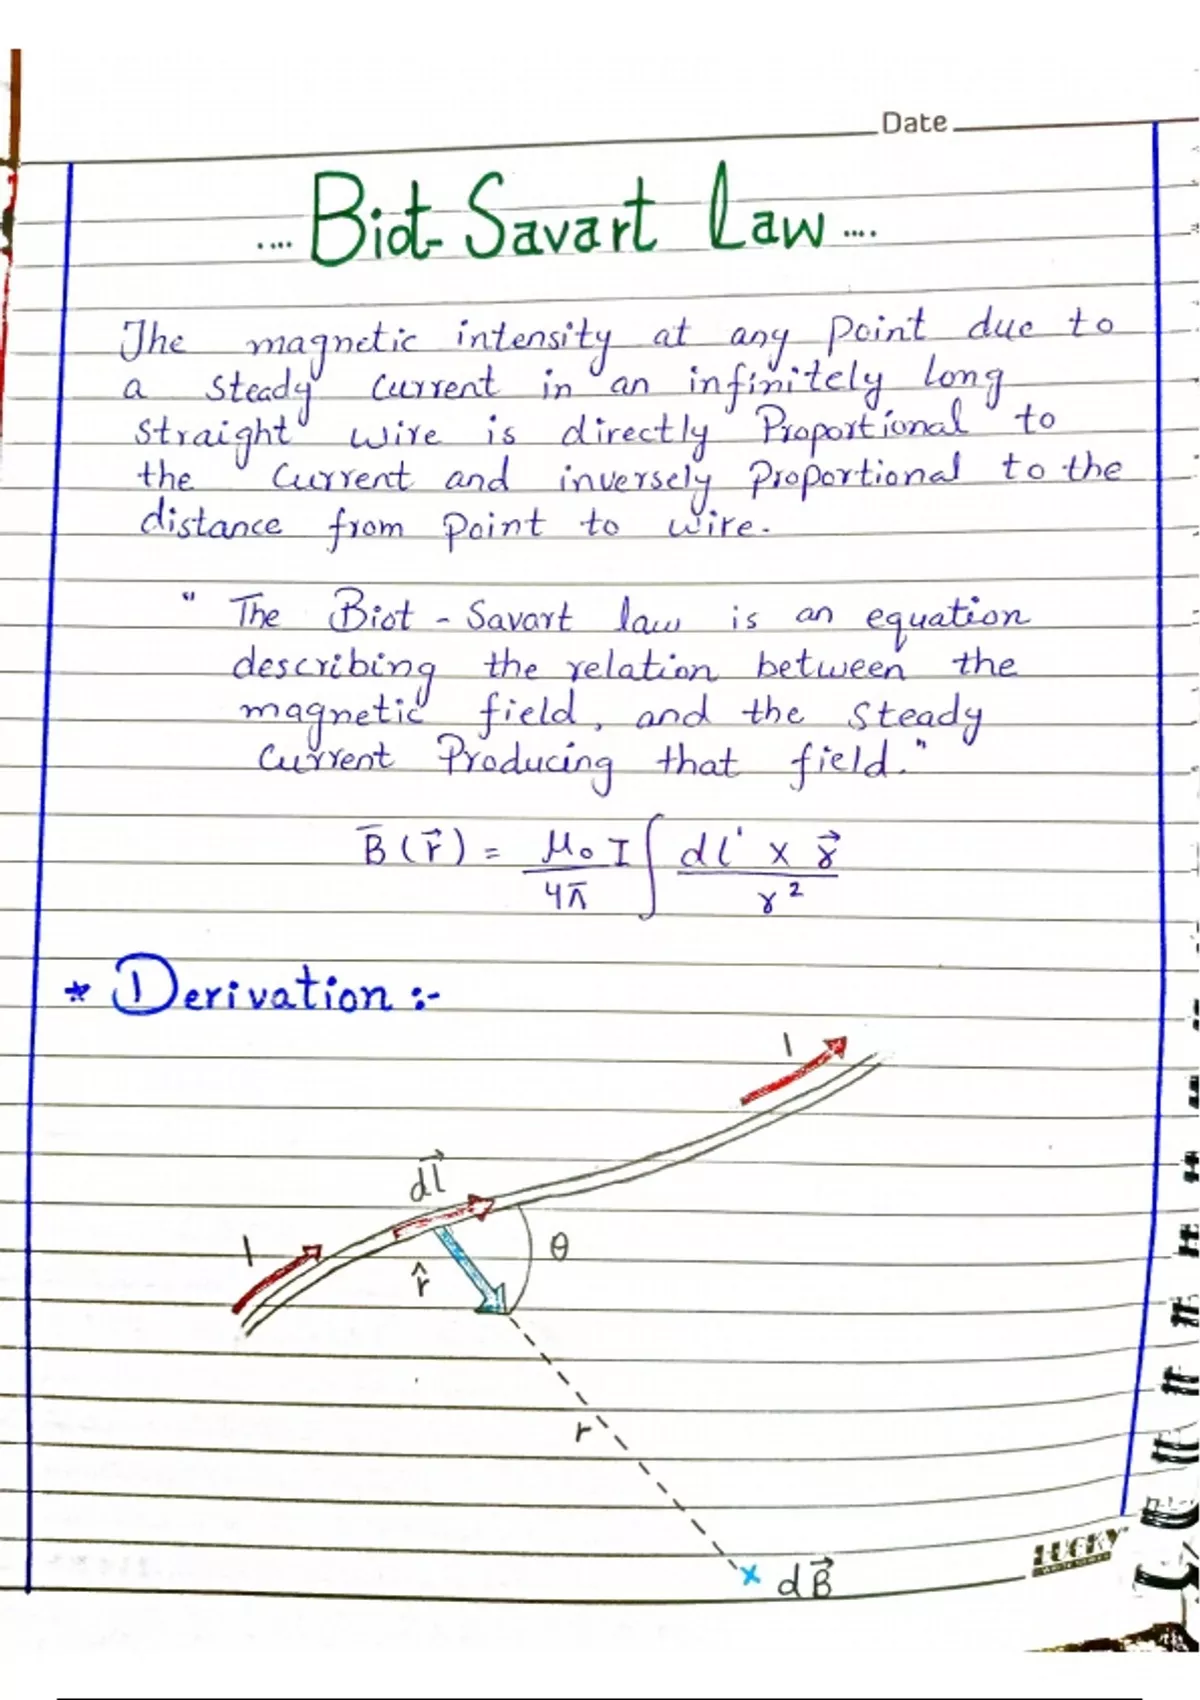 Date
.... Biot-Savart Law ....
The magnetic intensity at any Point due to
a steady Current in an infinitely long
straight wire is directly Proportional to
the Current and inversely Proportional to the
distance from Point to wire.
" The Biot - Savart law is an equation
describing the relation between the
magnetic field, and the steady
Current Producing that field."
B̅ (r⃗) = μ₀ I / 4π ∫ dl' × r⃗ / r²
* Derivation :-
I
dl⃗
I
θ
r̂
r
× dB⃗
LUCKY